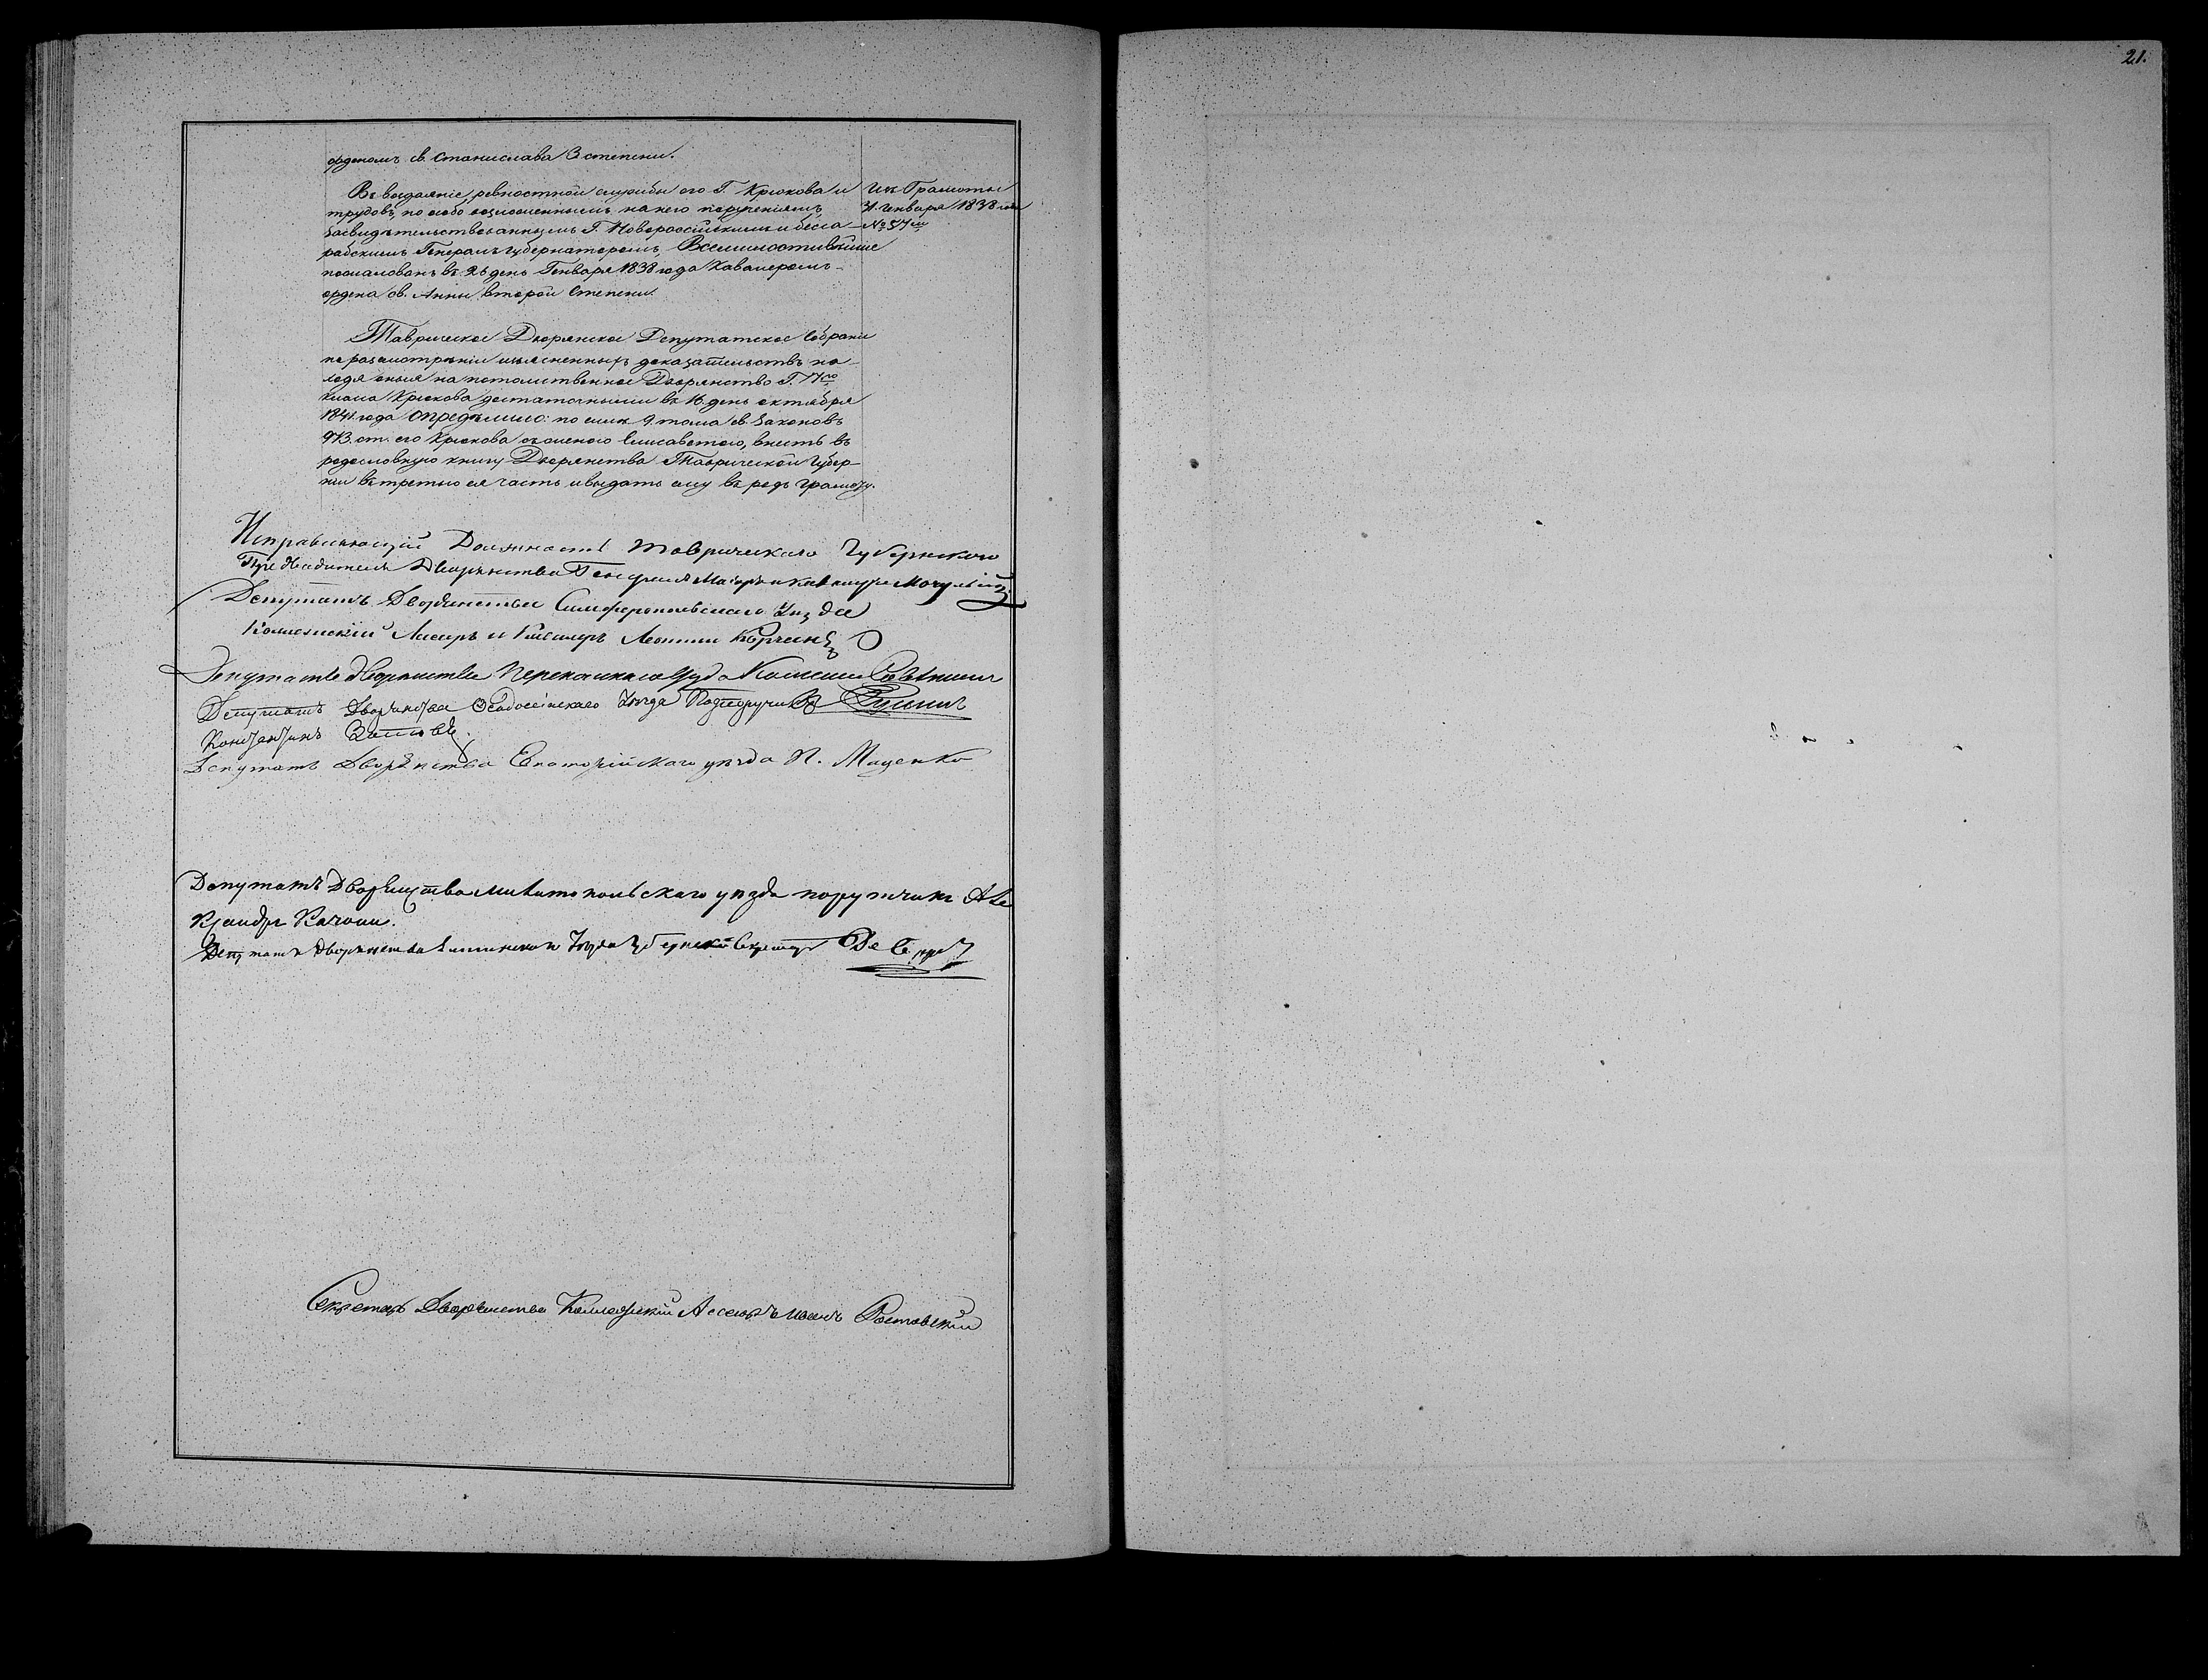 орденомъ св. Станислава 3 степени.
Въ воздаяніе, ревностной службы его Г. Крюкова и
трудовъ, по особо возложеннымъ на него порученіямъ,
засвидѣтельствованнымъ Г. Новороссійскимъ и Бесса-
рабскимъ Генералъ Губернаторомъ, Всемилостивѣйше
пожалованъ въ 26 день Генваря 1838 года Кавалеромъ
ордена св. Анны второй степени.
Изъ Грамоты
31. Генваря 1838 года
№ 57
Таврическое Дворянское Депутатское Собраніе
по разсмотрѣніи изъясненныхъ доказательствъ на-
ходя оныя на потомственное Дворянство Г.
Крюкова достаточными въ 16. день октября
1841. года опредѣлило: по силѣ 9. тома св. Законовъ
ст. его Крюкова съ женою Елисаветою, внесть въ
родословную книгу Дворянства Таврической Губер-
ніи въ третью ея часть и выдать ему въ родъ грамоту.
Исправляющій Должность Таврическаго Губернскаго
Предводителя Дворянства Генералъ Маіоръ и кавалеръ
Депутатъ Дворянства Симферопольскаго Уѣзда
и Кавалеръ
Депутатъ Дворянства Перекопскаго Уѣзда
Депутатъ Дворянства Ѳеодосійскаго Уѣзда Подпоручикъ
Константинъ
Депутатъ Дворянства Евпаторійскаго уѣзда П. Маценко
Депутатъ Дворянства Мелитопольскаго уѣзда поручикъ Але
ксандръ Качони.
Депутатъ Дворянства Ялтинскаго Уѣзда Губернскій Секретарь Де Серре
Секретарь Дворянства Коллежскій Ассесоръ Иванъ Ростовскій
21.